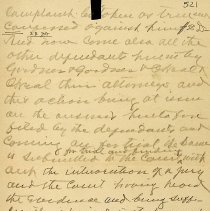 521
complaint be taken as true and
confessed against him
And now come also all the
other defendants present by
Gordon & Gordon &
their attorneys, and
this action being at issue
on the answer heretofore
filed by the defendants and
coming on for trial the same
is submitted to the Court with
out the intervention of a jury
and the Court having heard
the evidence and being suff